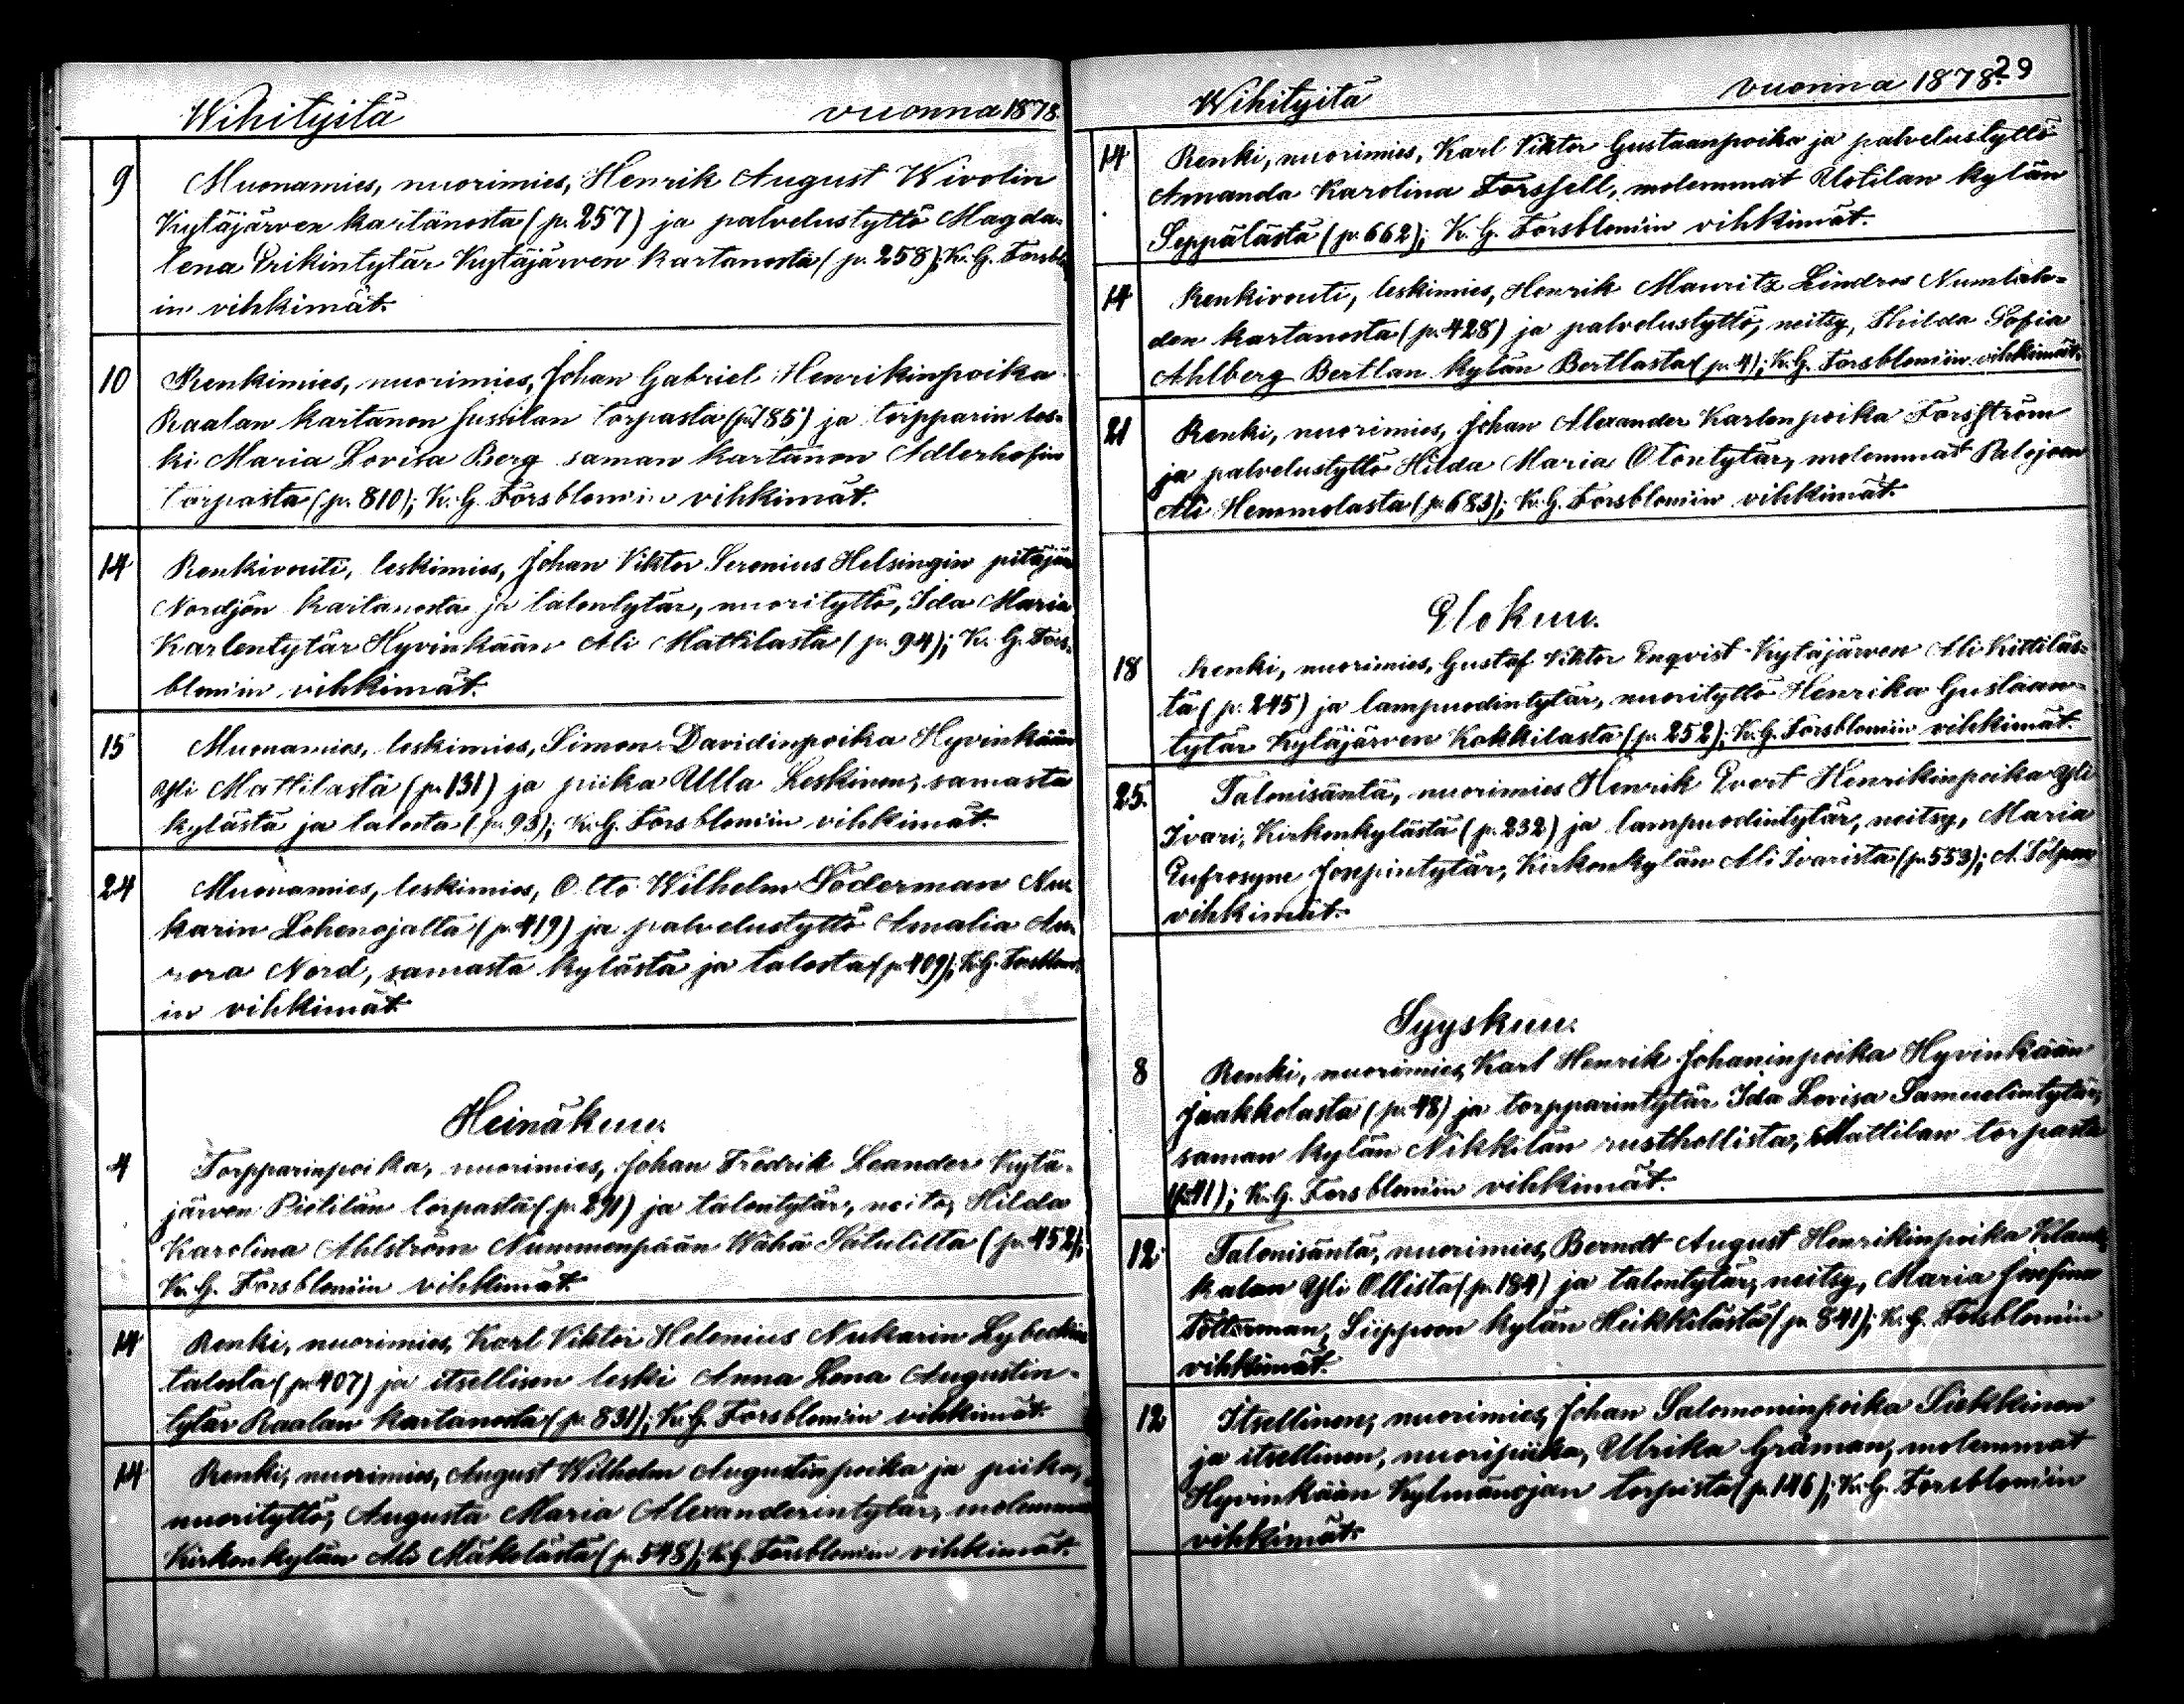 Wihityitä vuonna 1878.
9 Muonamies, nuorimies, Henrik August Wivolin
Kytäjärven kartanosta (p. 257) ja palvelustyttö Magda-
lena Erikintytär Kytäjärven kartanosta (p. 258); K. G. Forsblo
in vihkimät.
10 Renkimies, nuorimies, Johan Gabriel Henrikinpoika
Raalan kartanon Jussilan torpasta (p. 785) ja torpparin les-
ki Maria Lovisa Berg saman kartanon Adlerhofin
torpasta (p. 810); K. G. Forsblomin vihkimät.
14 Renkivouti, leskimies, Johan Viktor Serenius Helsingin pitäjän
Nordjön kartanosta ja talontytär, nuorityttö, Ida Maria
Karlentytär Hyvinkään Ali Mattilasta (p. 94); K. G. Fors-
blomin vihkimät.
15 Muonamies, leskimies, Simon Davidinpoika Hyvinkään
Yli Mattilasta (p. 131) ja piika Ulla Leskinen, samasta
kylästä ja talosta (p. 93); K. G. Forsblomin vihkimät.
24 Muonamies, leskimies, Otto Wilhelm Söderman Nu
karin Lehenojalta (p. 419) ja palvelustyttö Amalia Au
rora Nord, samasta kylästä ja talosta (p. 409); K. G. Forsblom
in vihkimät.
Heinäkuu.
4 Torpparinpoika, nuorimies, Johan Fredrik Leander Kytä-
järven Pietilän torpasta (p. 291) ja talontytär, neito, Hilda
Karolina Ahlström Nummenpään Wähä Seitulilta (p. 452);
K. G. Forsblomin vihkimät.
14 Renki, nuorimies, Karl Viktor Helenius Nukarin Lybeckin
talosta (p. 407) ja itsellisen leski Anna Lena Augustin-
tytär Raalan kartanosta (p. 831); K. G. Forsblomin vihkimät.
14 Renki, nuorimies, August Wilhelm Augustinpoika ja piika,
nuorityttö, Augusta Maria Alexanderintytär, molemmat
Kirkonkylän Ali Mäkelästä (p. 548); K. G. Forsblomin vihkimät.
29
Wihityitä vuonna 1878.
14 Renki, nuorimies, Karl Viktor Gustaanpoika ja palvelustyttö
Amanda Karolina Forssell, molemmat Uotilan kylän
Seppälästä (p. 662); K. G. Forsblomin vihkimät.
14 Renkivouti, leskimies, Henrik Mauritz Lindros Numlato-
den kartanosta (p. 428) ja palvelustyttö, neitsy, Hilda Sofia
Ahlberg Bertlan kylän Bertlasta (p. 4); K. G. Forsblomin vihkimät.
21 Renki, nuorimies, Johan Alexander Karlenpoika Forsström
ja palvelustyttö Hilda Maria Otontytär, molemmat Palojoen
Ali Hemmolasta (p. 683); K. G. Forsblomin vihkimät.
Elokuu.
18 Renki, nuorimies, Gustaf Viktor Enqvist Kytäjärven Ali Kittiläs-
tä (p. 245) ja lampuodintytär, nuorityttö Henrika Gustaan-
tytär Kytäjärven Kokkilasta (p. 252); K. G. Forsblomin vihkimät.
25. Talonisäntä, nuorimies Henrik Evert Henrikinpoika Yli
Ivari, Kirkonkylästä (p. 232) ja lampuodintytär, neitsy, Maria
Eufrosyne Josepintytär, Kirkonkylän Ali Ivarista (p. 553); A. Tolpon
vihkimät.
Syyskuu.
8 Renki, nuorimies, Karl Henrik Johaninpoika Hyvinkään
Jaakkolasta (p. 48) ja torpparintytär Ida Lovisa Samuelintytär,
saman kylän Nikkilän rusthollista, Mattilan torpasta
(p. 41); K. G. Forsblomin vihkimät.
12. Talonisäntä, nuorimies, Berndt August Henrikinpoika Klauk
kalan Yli Ollista (p. 184) ja talontytär, neitsy, Maria Josefina
Tötterman, Siippoon kylän Heikkilästä (p. 841); K. G. Forsblomin
vihkimät.
12 Itsellinen, nuorimies, Johan Salomoninpoika Siekkinen
ja itsellinen, nuoripiika, Ulrika Gräman, molemmat
Hyvinkään Kylmänojan torpista (p. 146); K. G. Forsblomin
vihkimät.